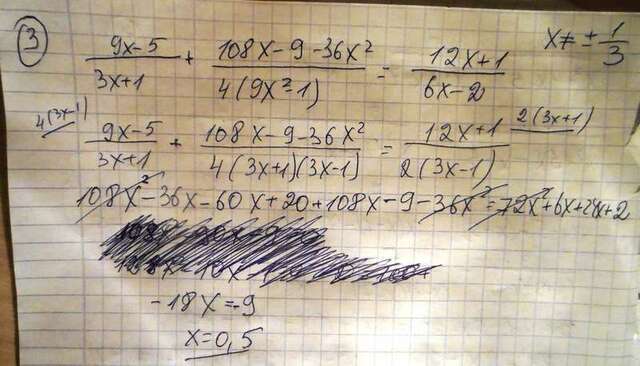 3
(9x-5)/(3x+1) + (108x-9-36x²)/(4(9x²-1)) = (12x+1)/(6x-2) x≠±1/3
4(3x-1) (9x-5)/(3x+1) + (108x-9-36x²)/(4(3x+1)(3x-1)) = (12x+1)/(2(3x-1)) 2(3x+1)
108x²-36x-60x+20+108x-9-36x²=72x²+6x+24x+2
-18x=-9
x=0,5